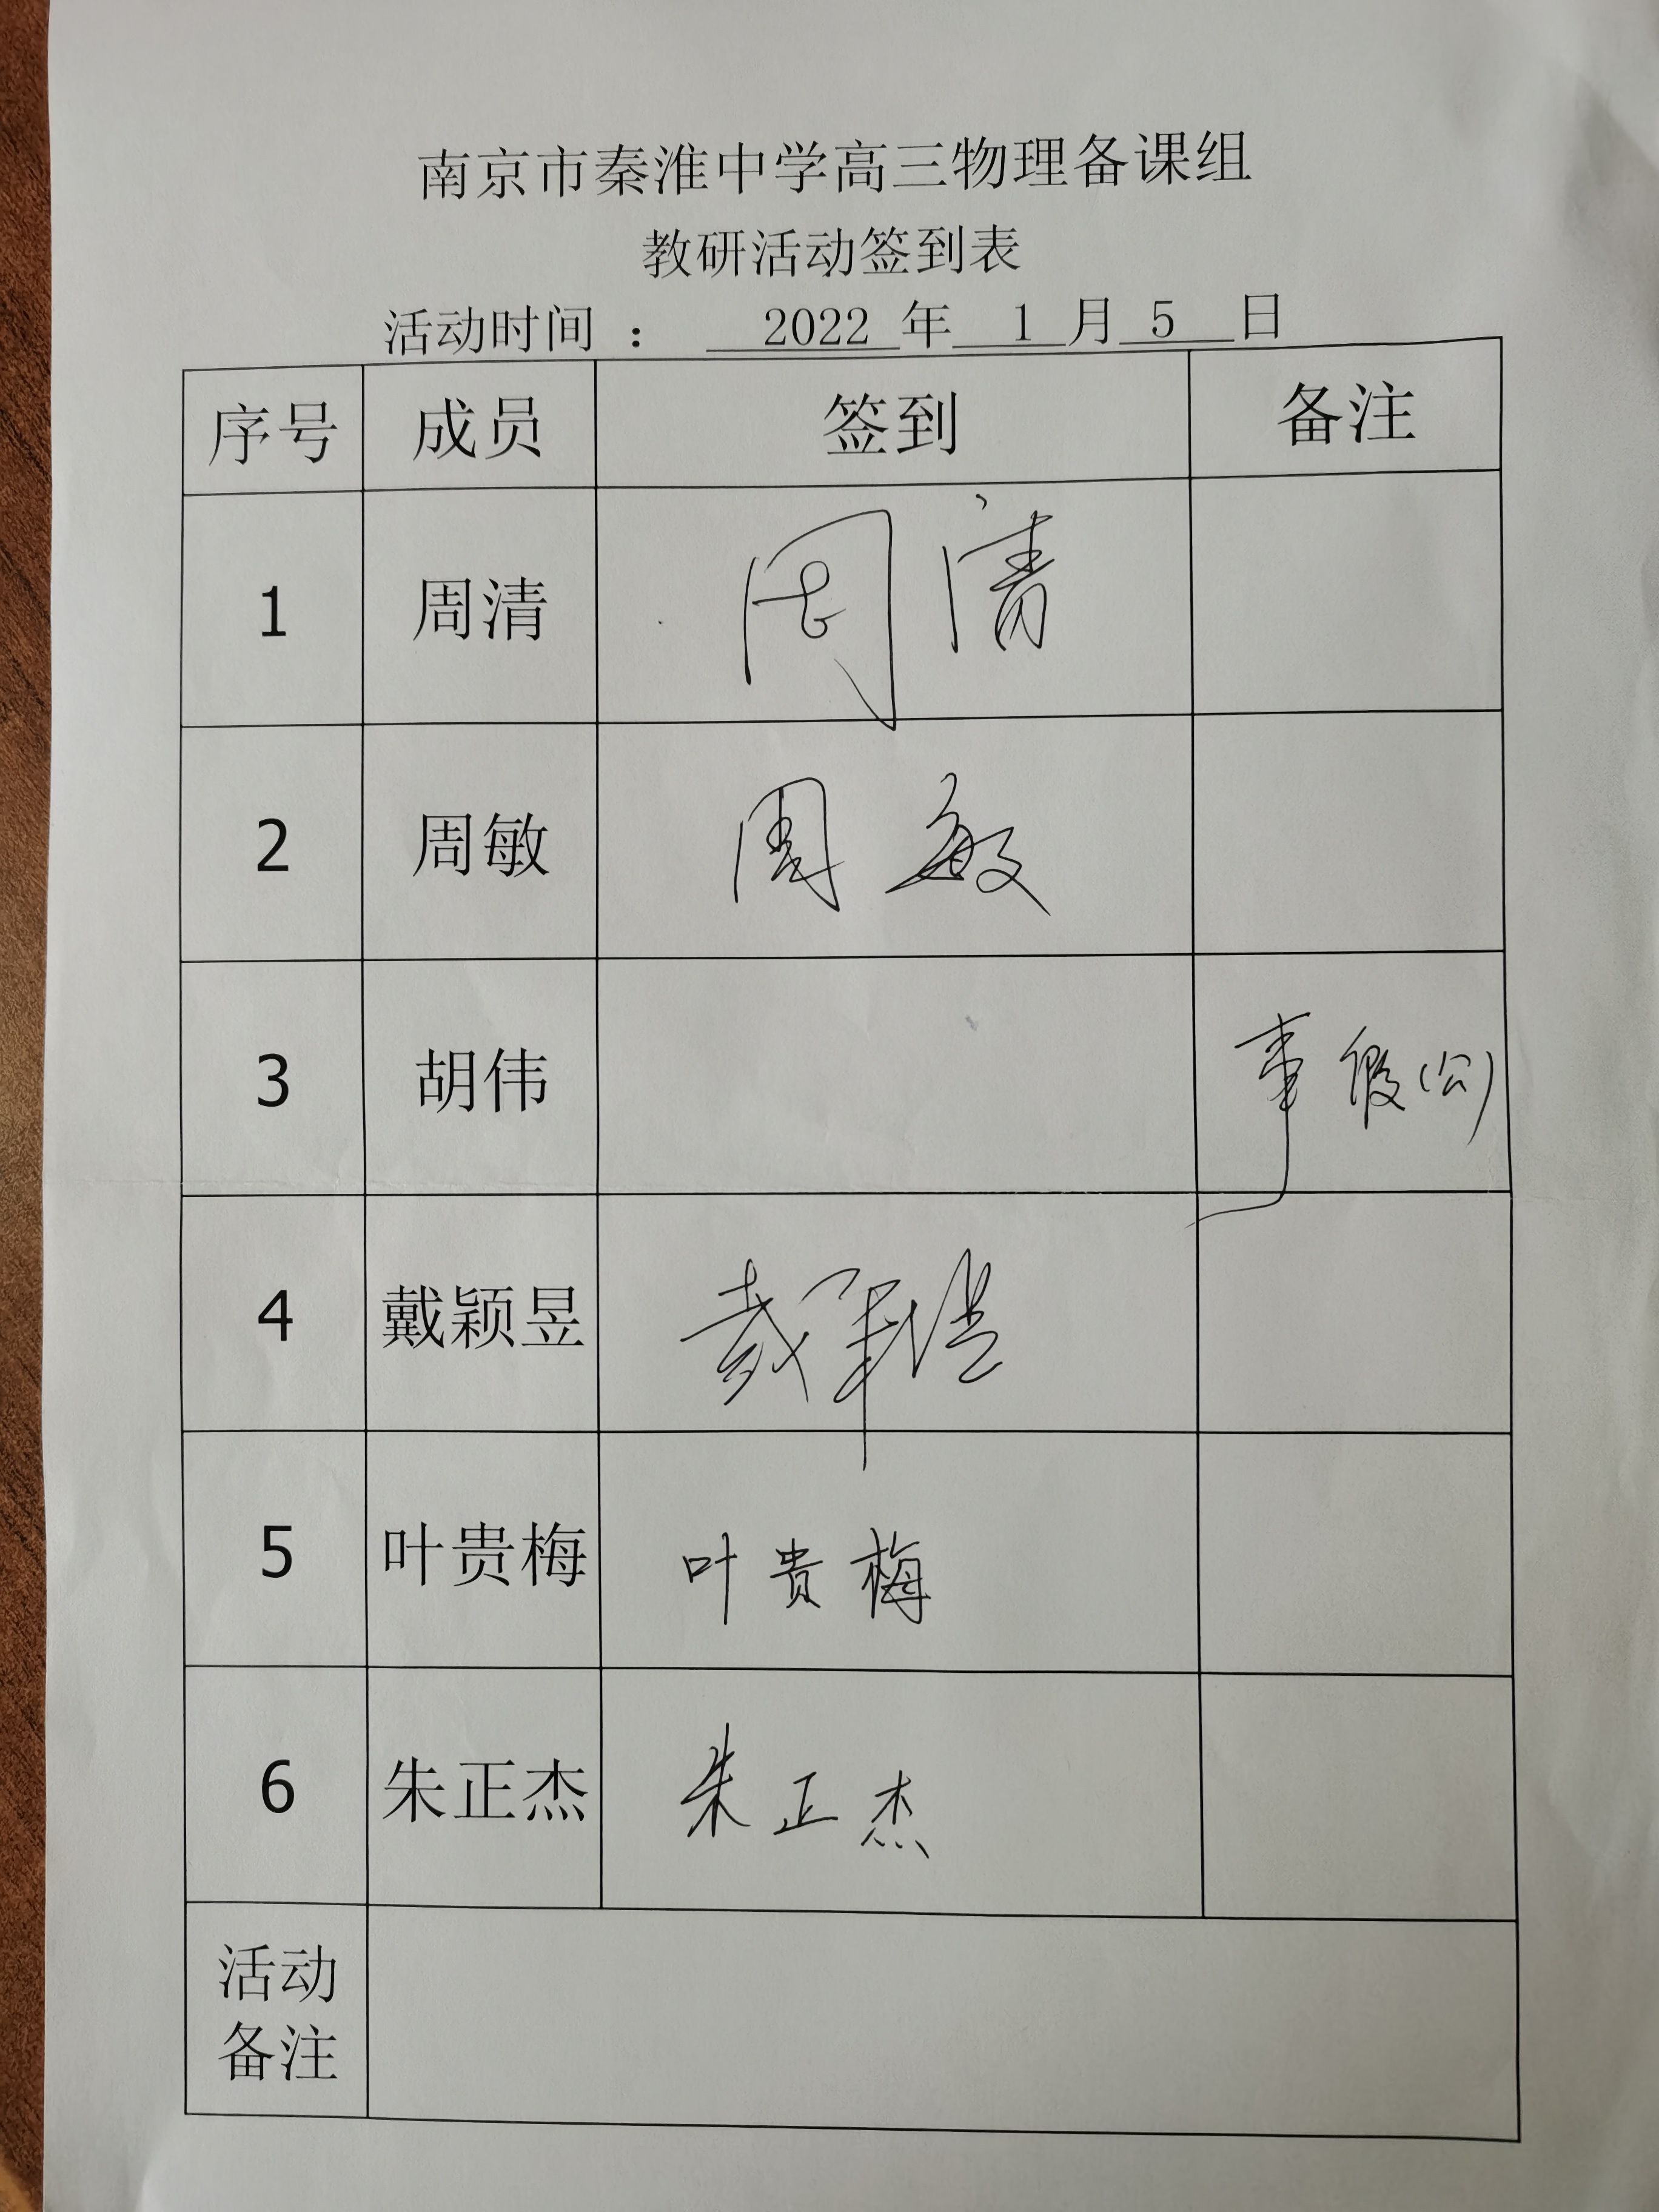 南京市秦淮中学高三物理备课组
教研活动签到表
活动时间 : 2022 年 1 月 5 日
序号 成员 签到 备注
1 周清 周清
2 周敏 周敏
3 胡伟 事假(公)
4 戴颖昱
5 叶贵梅 叶贵梅
6 朱正杰 朱正杰
活动
备注